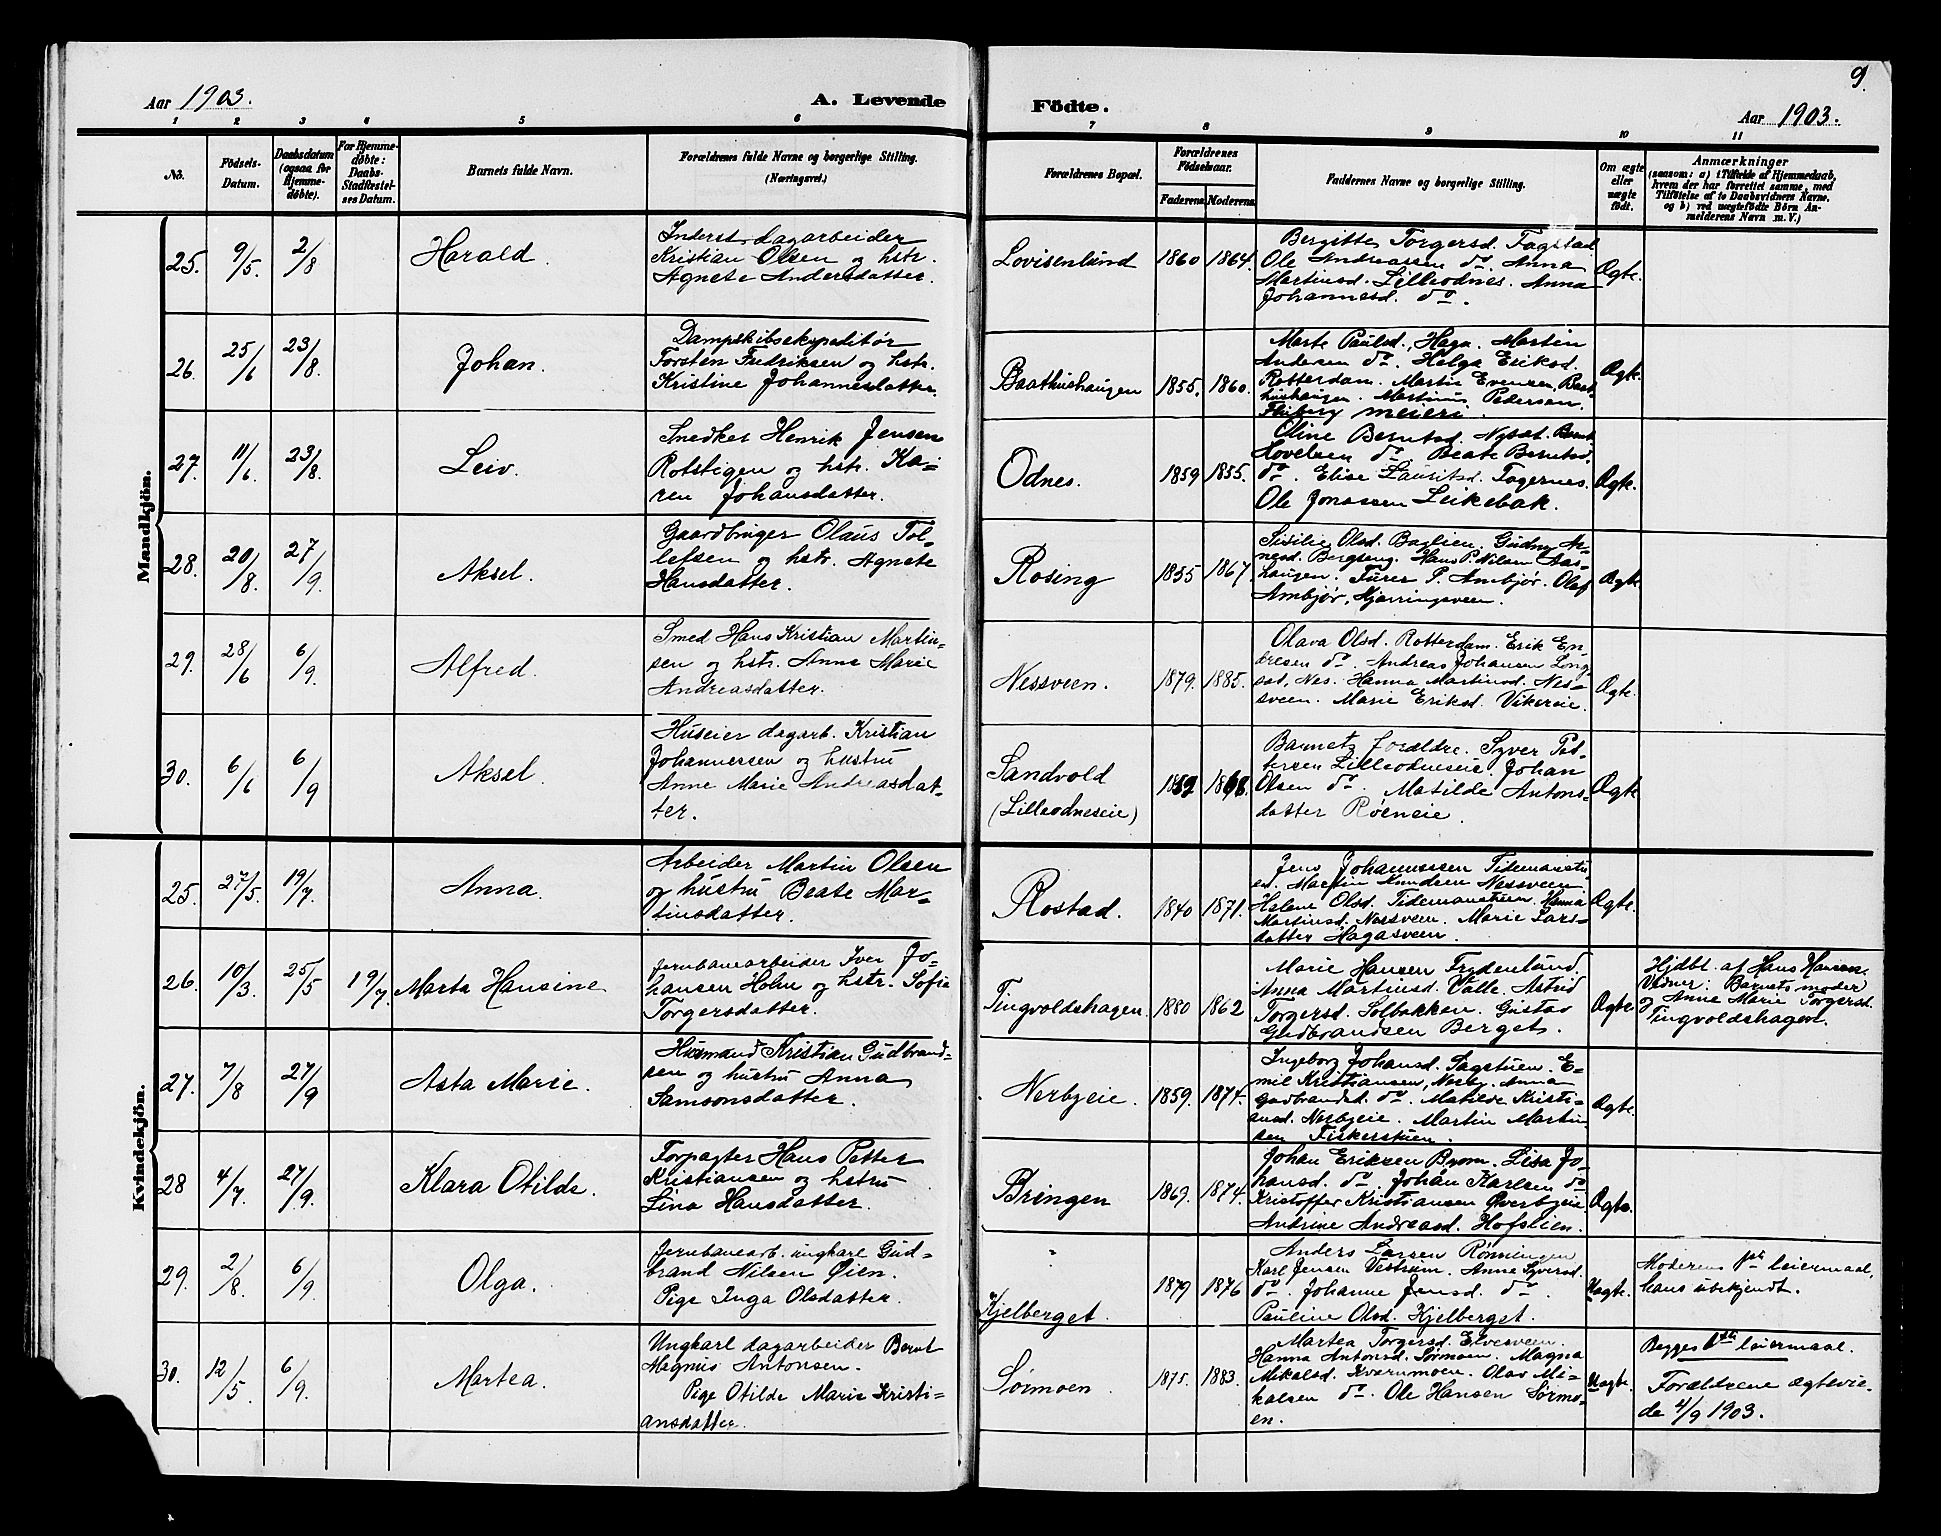 9.
Aar 1903.
A. Levende Födte.
Aar 1903.
1 2 3 4 5 6 7 8 9 10 11
No.
Födsels-Datum.
Daabsdatum (ogsaa for Hjemmedöbte).
For Hjemmedöbte: Daabs-Stadfæstelses Datum.
Barnets fulde Navn.
Forældrenes fulde Navne og borgerlige Stilling.
(Næringsvei.)
Forældrenes Bopæl.
Forældrenes Födselsaar.
Faderens Moderens
Faddernes Navne og borgerlige Stilling.
Om ægte eller uægte födt.
Anmærkninger
(saasom: a) i Tilfælde af Hjemmedaab, hvem der har forrettet samme, med Tilföielse af to Daabsvidners Navne, og b) ved uægtefödte Börn Anmelderens Navn m. V.)
Mandkjön.
25. 9/5. 2/8 Harald.
Inderst dagarbeider
Kristian Olsen og hstr.
Agnete Andersdatter.
Lovisenlund 1860 1864.
Bergitte Torgersd. Fagstad
Ole Andreassen do. Anna
Martinsd. Lilleodnes. Anna
Johannesd. do.
Ægte.
26. 25/6 23/8. Johan.
Dampskibsekspeditör
Torsten Fredriksen og hstr.
Kristine Johannesdatter.
Baathushaugen 1855. 1860.
Marte Paulsd. Haga. Martin
Andersen do. Helga Eriksd.
Rotterdam. Martin Evensen, Baat-
hushaugen. Martinus Pedersen.
Fluberg meieri.
Ægte.
27. 11/6. 23/8. Leiv.
Snedker Henrik Jensen
Rotstigen og hstr. Ka-
ren Johansdatter.
Odnes. 1859 1855.
Oline Berntsd. Nysæt. Bernt
Lovelsen do. Beate Berntsd.
do. Elise Lauritsd. Fagernes.
Ole Jonassen Leikebak.
Ægte.
28. 20/8. 27/9. Aksel.
Gaardbruger Olaus Tol-
lefsen og hstr. Agnete
Hansdatter.
Rosing 1855 1867.
Sisilie Olsd. Baglien. Gudny Ar-
nesd. Bergseng. Hans P. Nilsen Aas-
haugen. Furer P. Ambjør. Olaf
Ambjør, Hjarringsveen.
Ægte.
29. 28/6 6/9. Alfred.
Smed Hans Kristian Martin-
sen og hstr. Anne Marie
Andreasdatter.
Nessveen. 1879. 1885.
Olava Olsd. Rotterdam. Erik En-
dresen do. Andreas Johansen Long-
sæt, Nes. Hanna Martinsd. Nes-
sveen. Marie Eriksd. Vikereie.
Ægte.
30. 6/6 6/9 Aksel.
Huseier dagarb. Kristian
Johannessen og hustru
Anne Marie Andreasdat-
ter.
Sandvold
(Lilleodneseie) 1859 1868.
Barnets forældre. Syver Pet-
tersen Lilleodneseie. Johan
Olsen do. Matilde Antons-
datter Røeneie.
Ægte
Kvindekjön.
25. 27/5. 19/7. Anna.
Arbeider Martin Olsen
og hustru Beate Mar-
tinsdatter.
Rostad. 1840 1871.
Jens Johannessen Tidemanstu-
en. Martin Knudsen Nessveen.
Helene Olsd. Tidemanstuen. Hanna
Martinsd. Nessveen. Marie Lars-
datter Hagasveen.
Ægte.
26. 10/3. 25/5 19/7. Marta Hansine
Jernbanearbeider Iver Jo-
hansen Holm og hstr. Sofie
Torgersdatter.
Tingvoldshagen. 1880 1862
Marie Hansen Frydenlund.
Anna Martinsd. Valle. Astrid
Torgersd. Solbakken. Gustav
Gudbrandsen Berget.
Ægte.
Hjdbt. af Hans Hansen.
Vidner: Barnets moder
og Anne Marie Torgersd.
Tingvoldshagen.
27. 7/8 27/9 Asta Marie.
Husmand Kristian Gudbrand-
sen og hustru Anna
Samsonsdatter.
Nerbyeie. 1859. 1874.
Ingeborg Johansd. Fagstuen. E-
mil Kristiansen, Nerby. Anna
Gudbrandsd. do. Matilde Kristi-
ansd. Nerbyeie. Martin Martin-
sen Fiskerstuen.
Ægte.
28 4/7. 27/9. Klara Otilde.
Forpagter Hans Petter
Kristiansen og hstru
Lina Hansdatter.
Bringen 1869. 1874.
Johan Eriksen Byom. Lisa Jo-
hansd. do. Johan Karlsen do
Kristoffer Kristiansen Øverbyeie
Andrine Andreasd. Hofslien.
Ægte.
29. 2/8. 6/9. Olga.
Jernbanearb. ungkarl Gud-
brand Nilsen Øien.
Pige Inga Olsdatter.
"
Kjelberget. 1879 1876
Anders Larsen Rønningen
Karl Jensen Vestrum. Anne Syversd.
do. Johanne Jensd. do.
Pauline Olsd. Kjelberget.
Uægte.
Moderens 1ste leiermaal,
hans ubekjendt.
30. 12/5. 6/9. Martea.
Ungkarl dagarbeider Bernt
Magnus Antonsen.
Pige Otilde Marie Kristi-
ansdatter.
Sørmoen. 1875. 1883.
Martea Torgersd. Elvesveen.
Hanna Antonsd. Sørmoen. Magna
Mikalsd. Kvernmoen. Olav Mi-
kalsen do. Ole Hansen Sørmo-
en.
Uægte.
Begges 1ste leiermaal.
Forældrene ægtevie-
de 4/9 1903.